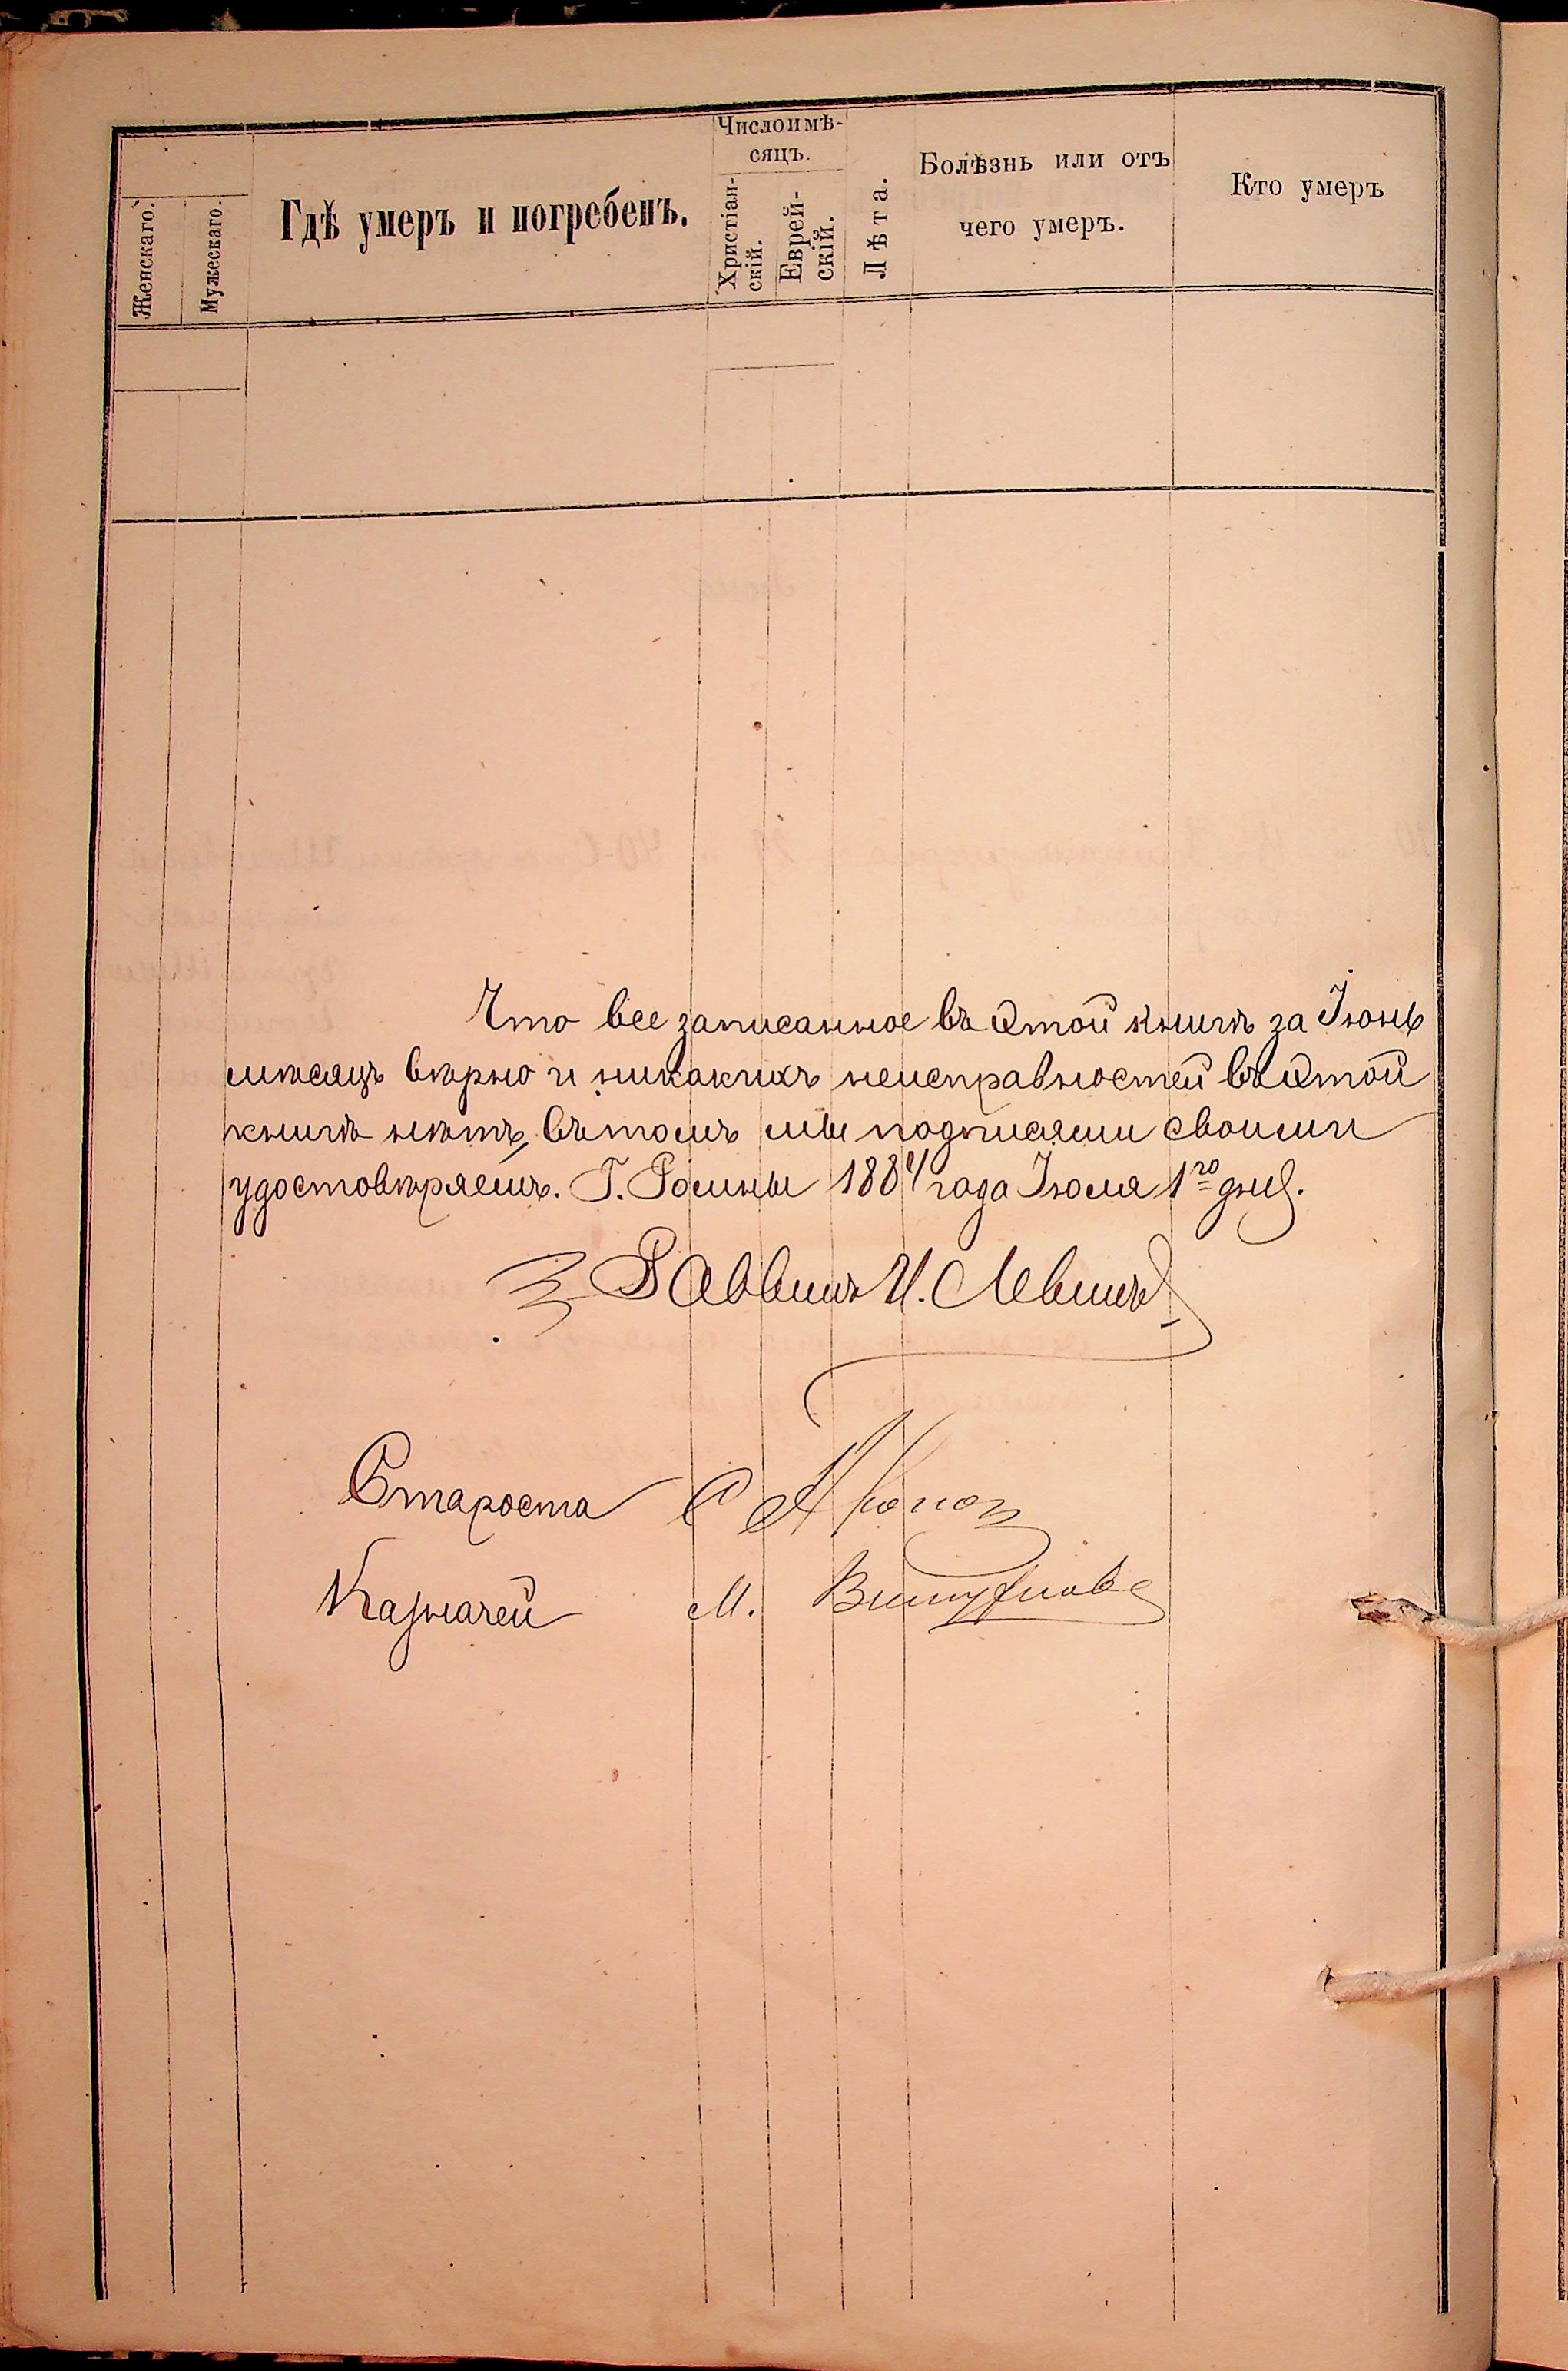 Женскаго.
Мужескаго.
Гдѣ умеръ и погребенъ.
Число и мѣ-
сяцъ.
Христіан-
скій.
Еврей-
скій.
Лѣта.
Болѣзнь или отъ
чего умеръ.
Кто умеръ
Что все записанное въ этой книгѣ за Іюнь
мѣсяцъ вѣрно и никакихъ неисправностей въ этой
книгѣ нѣтъ, въ томъ мы подписями своими
удостовѣряемъ. Г. Ромны 1884 года Іюля 1го дня.
Раввинъ И. Левинъ
Староста
Казначей М.